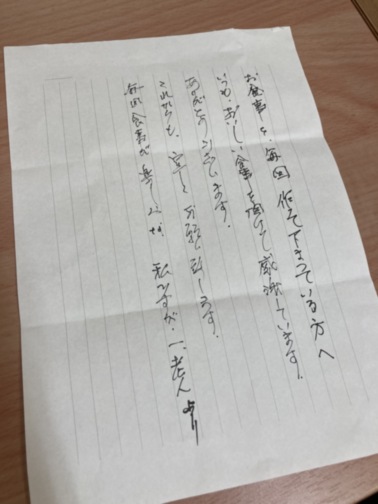 お食事を、毎回作って下さっている方へ
いつも、おいしい食事を頂けて感謝しています。
ありがとうございます。
これからも、宜しくお願い致します。
毎回食事が楽しみな 私ですが、一、老人より